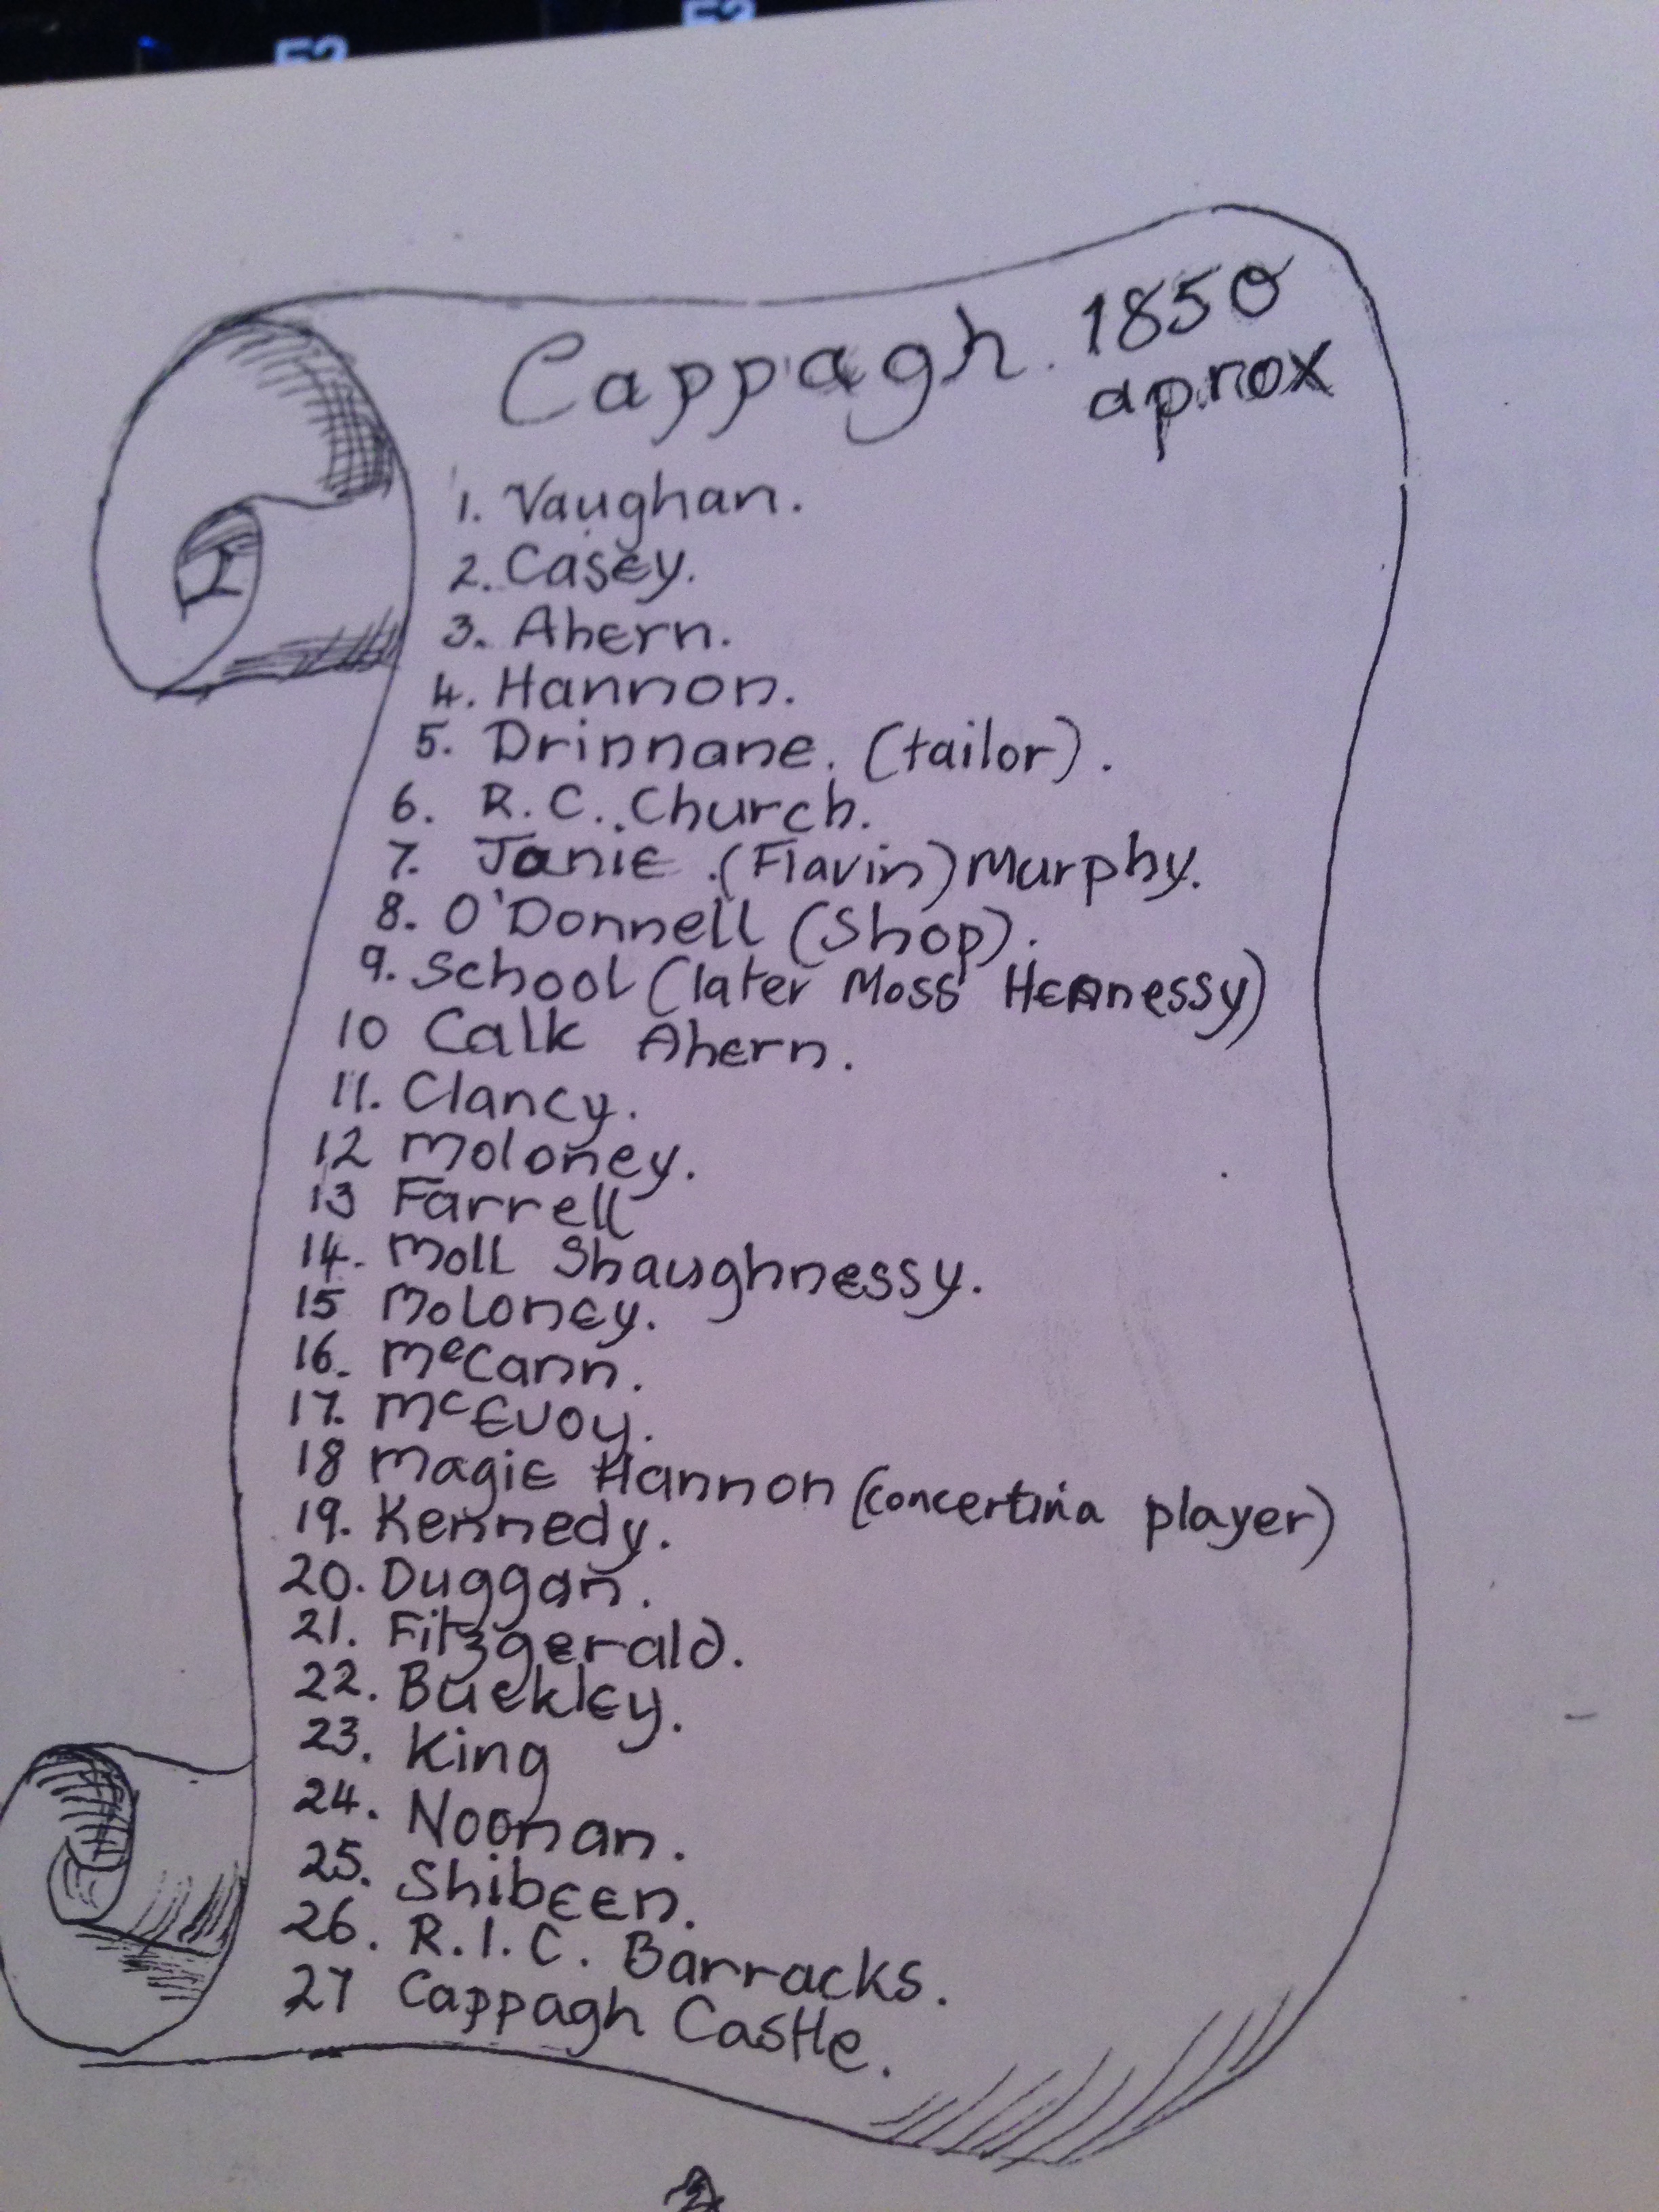 F2
F2
Cappagh. 1850
aprox
1. Vaughan.
2. Casey.
3. Ahern.
4. Hannon.
5. Drinnane. (tailor).
6. R.C. Church.
7. Janie (Flavin) Murphy.
8. O'Donnell (Shop).
9. School (later Moss Hennessy)
10 Calk Ahern.
11. Clancy.
12 Moloney.
13 Farrell
14. Moll Shaughnessy.
15 Moloney.
16. McCann.
17. McEvoy.
18 Magie Hannon (concertina player)
19. Kennedy.
20. Duggan.
21. Fitzgerald.
22. Buckley.
23. King
24. Noonan.
25. Shibeen.
26. R.I.C. Barracks.
27 Cappagh Castle.